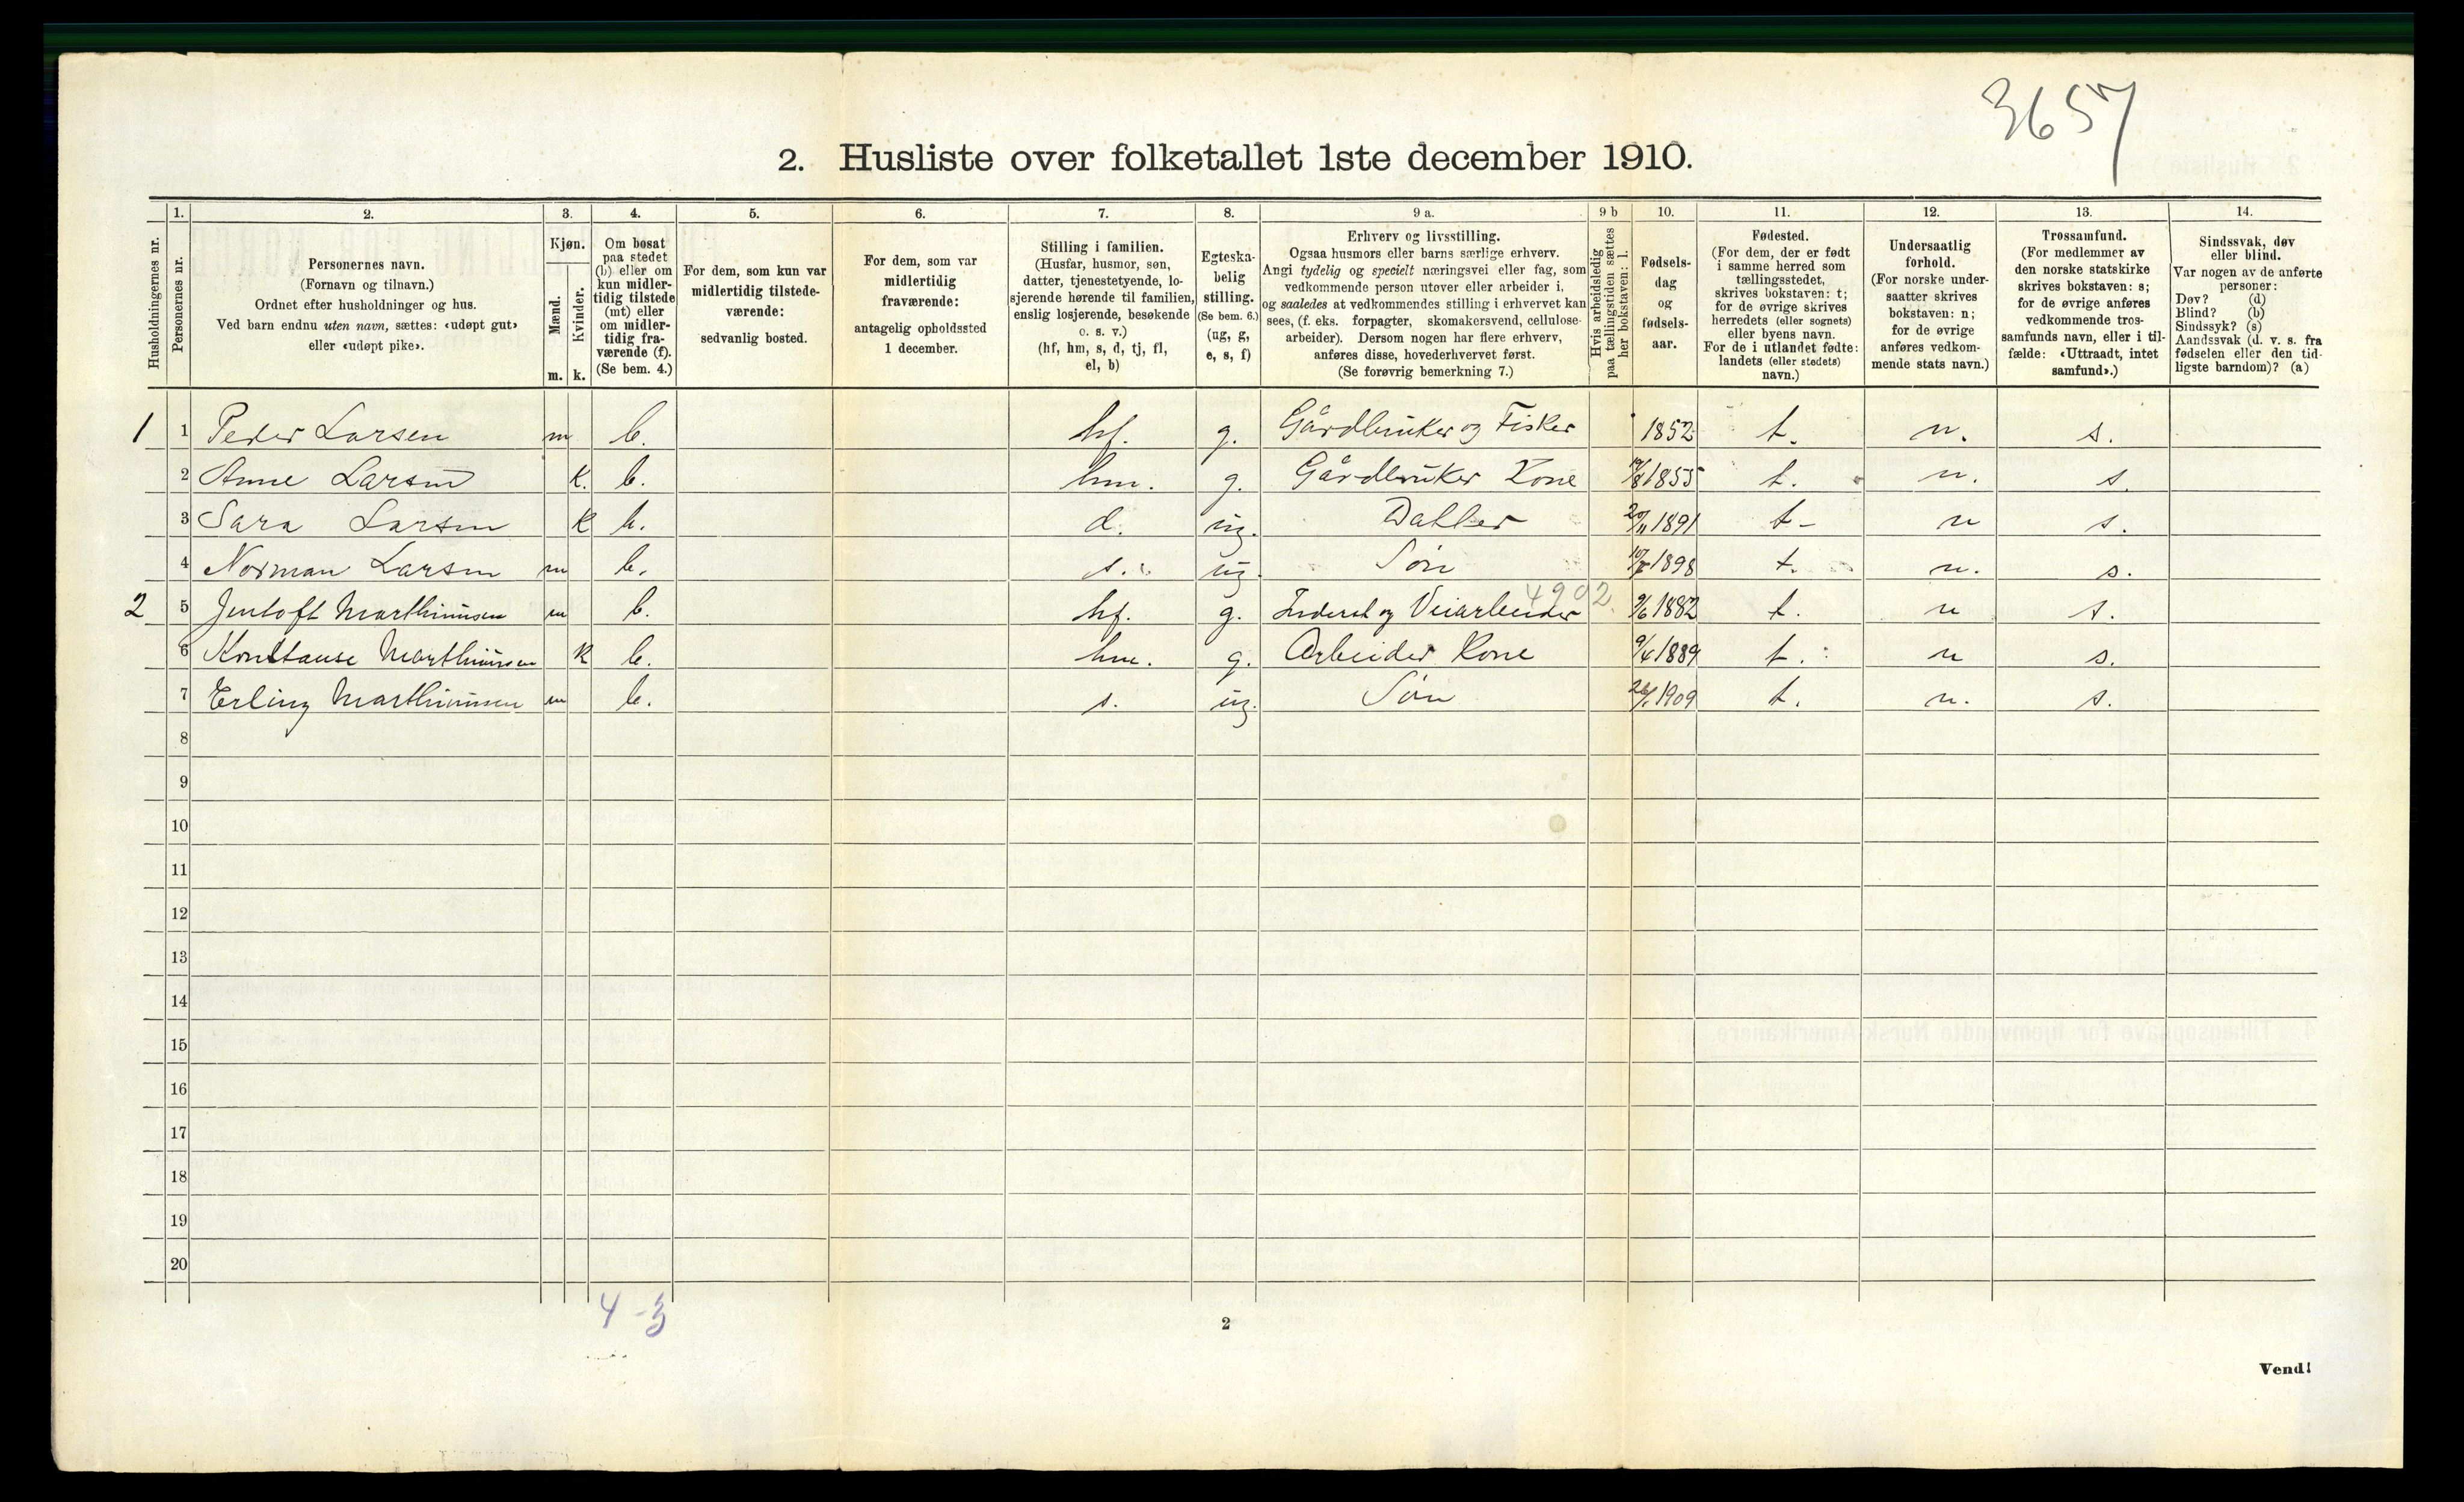 3657
2. Husliste over folketallet 1ste december 1910.
Husholdningernes nr.
1. Personernes nr.
2. Personernes navn.
(Fornavn og tilnavn.)
Ordnet efter husholdninger og hus.
Ved barn endnu uten navn, sættes: «udøpt gut»
eller «udøpt pike».
3. Kjøn.
Mænd. Kvinder.
m. k.
4. Om bosat
paa stedet
(b) eller om
kun midler-
tidig tilstede
(mt) eller
om midler-
tidig fra-
værende (f).
(Se bem. 4.)
5. For dem, som kun var
midlertidig tilstede-
værende:
sedvanlig bosted.
6. For dem, som var
midlertidig
fraværende:
antagelig opholdssted
1 december.
7. Stilling i familien.
(Husfar, husmor, søn,
datter, tjenestetyende, lo-
sjerende hørende til familien,
enslig losjerende, besøkende
o. s. v.)
(hf, hm, s, d, tj, fl,
el, b)
8. Egteska-
belig
stilling.
(Se bem. 6.)
(ug, g,
e, s, f)
9 a. Erhverv og livsstilling.
Ogsaa husmors eller barns særlige erhverv.
Angi tydelig og specielt næringsvei eller fag, som
vedkommende person utøver eller arbeider i,
og saaledes at vedkommendes stilling i erhvervet kan
sees, (f. eks. forpagter, skomakersvend, cellulose-
arbeider). Dersom nogen har flere erhverv,
anføres disse, hovederhvervet først.
(Se forøvrig bemerkning 7.)
9 b Hvis arbeidsledig
paa tællingstiden sættes
her bokstaven: l.
10. Fødsels-
dag
og
fødsels-
aar.
11. Fødested.
(For dem, der er født
i samme herred som
tællingsstedet,
skrives bokstaven: t;
for de øvrige skrives
herredets (eller sognets)
eller byens navn.
For de i utlandet fødte:
landets (eller stedets)
navn.)
12. Undersaatlig
forhold.
(For norske under-
saatter skrives
bokstaven: n;
for de øvrige
anføres vedkom-
mende stats navn.)
13. Trossamfund.
(For medlemmer av
den norske statskirke
skrives bokstaven: s;
for de øvrige anføres
vedkommende tros-
samfunds navn, eller i til-
fælde: «Uttraadt, intet
samfund».)
14. Sindssvak, døv
eller blind.
Var nogen av de anførte
personer:
Døv? (d)
Blind? (b)
Sindssyk? (s)
Aandssvak (d. v. s. fra
fødselen eller den tid-
ligste barndom)? (a)
1 1 Peder Larsen m b. hf. g. Gårdbruker og Fisker 1852 t. n. s.
2 Anne Larsen k. b. hm. g. Gårdbruker Kone 1855 t. n. s.
3 Sara Larsen k b. d. ug. Datter 20/11 1891 t- n s.
4 Norman Larsen m b. s. ug. Søn 1898 t. n. s.
4902
2 5 Jentoft Marthinusen m b. hf. g. Inderst og Veiarbeider 9/6 1882 t. n s.
6 Konstanse Marthinusen k b. hm. g. Arbeider Kone 9/4 1889 t. n s.
7 Erling Marthinusen m b. s. ug. Søn 26/1 1909 t. n. s.
8
9
10
11
12
13
14
15
16
17
18
19
20
4-3
2
Vend!